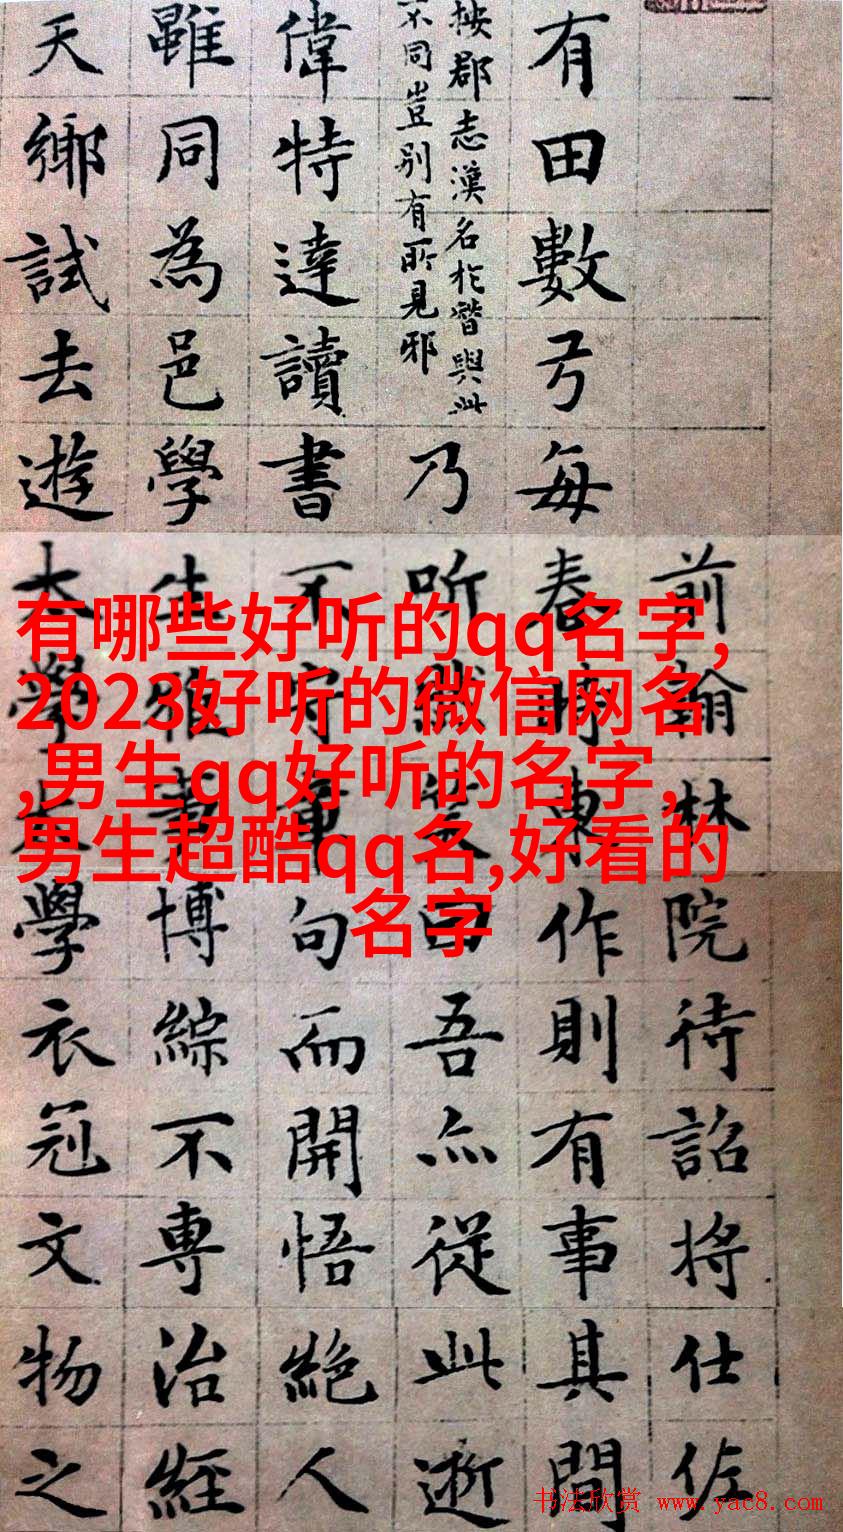 有哪些好听的qq名字,
2023好听的微信网名
,男生qq好听的名字,
男生超酷qq名,好看的
名字
前翰林院待詔将仕佐
有田數弓每春時東作則有事其間
按郡志漢名於 與此
不同豈别有所見邪
乃听微笑曰吾亦從此逝
偉特達讀書不守章句而開悟絕人
雖同為邑學生 博綜不専治經
天鄉試去遊太學太學衣冠文物之
书法欣赏 www.yac8.com